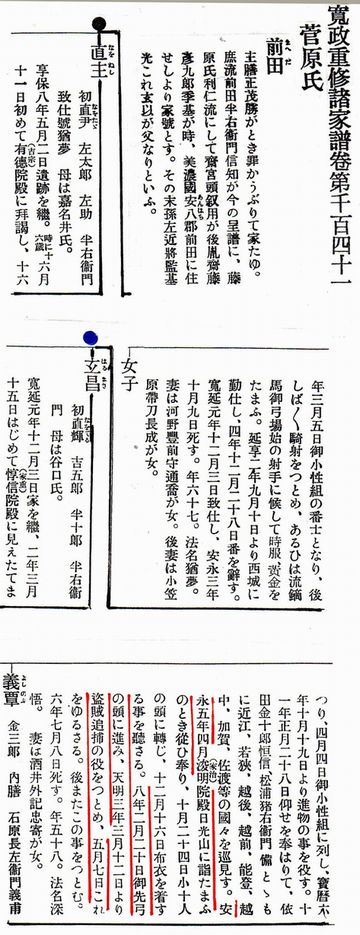 寛政重修諸家譜巻第千百四十一
菅原氏
前田
主膳正茂勝がとき罪かうぶりて家たゆ。
庶流前田半右衛門信知が今の呈譜に、藤
原氏利仁流にして齋宮頭叙用が後胤齋藤
彦九郎季基が時、美濃國安八郡前田に住
せしより家號とす。その末孫左近將監基
光これ玄以が父なりといふ。
直主
初直尹 左太郎 左助 半右衛門
致仕號猶夢 母は嘉名井氏。
享保八年五月二日遺跡を繼。時に十六歳 六月
十一日初めて有德院殿に拜謁し、十六
年三月五日御小性組の番士となり、後
しば〳〵騎射をつとめ、あるひは流鏑
馬御弓場始の射手に候して時服黄金を
たまふ。延享二年九月十日より西城に
勤仕し、四年十二月二十八日番を辭す。
寛延元年十二月三日致仕し、安永三年
十月九日死す。年六十七。法名猶夢。
妻は河野豐前守通喬が女。後妻は小笠
原帶刀長成が女。
女子
玄昌
初直輝 吉五郎 半十郎 半右衛
門 母は谷口氏。
寛延元年十二月三日家を繼、二年三月
十五日はじめて惇信院殿に見えたてま
つり、四月四日御小性組に列し、寶曆六
年十月十九日より進物の事を役す。十
一年正月二十八日仰せを奉はりて、依
田金十郎恒信松浦猪右衛門 備ともも
に近江、若狹、越後、越前、能登、越
中、加賀、佐渡等の國々を巡見す。安
永五年四月浚明院殿日光山に詣たまふ
のとき從ひ奉り、十月二十四日小十人
の頭に轉じ、十二月十六日布衣を着す
る事を聽さる。八年二月二十日御先弓
の頭に進み、天明三年三月十二日より
盜賊追捕の役をつとめ、五月七日これ
をゆるさる。後またこの事をつとむ。
六年七月八日死す。年五十八。法名深
悟。 妻は酒井外記忠寄が女。
義覃
金三郎 内膳 石原長左衛門義甫